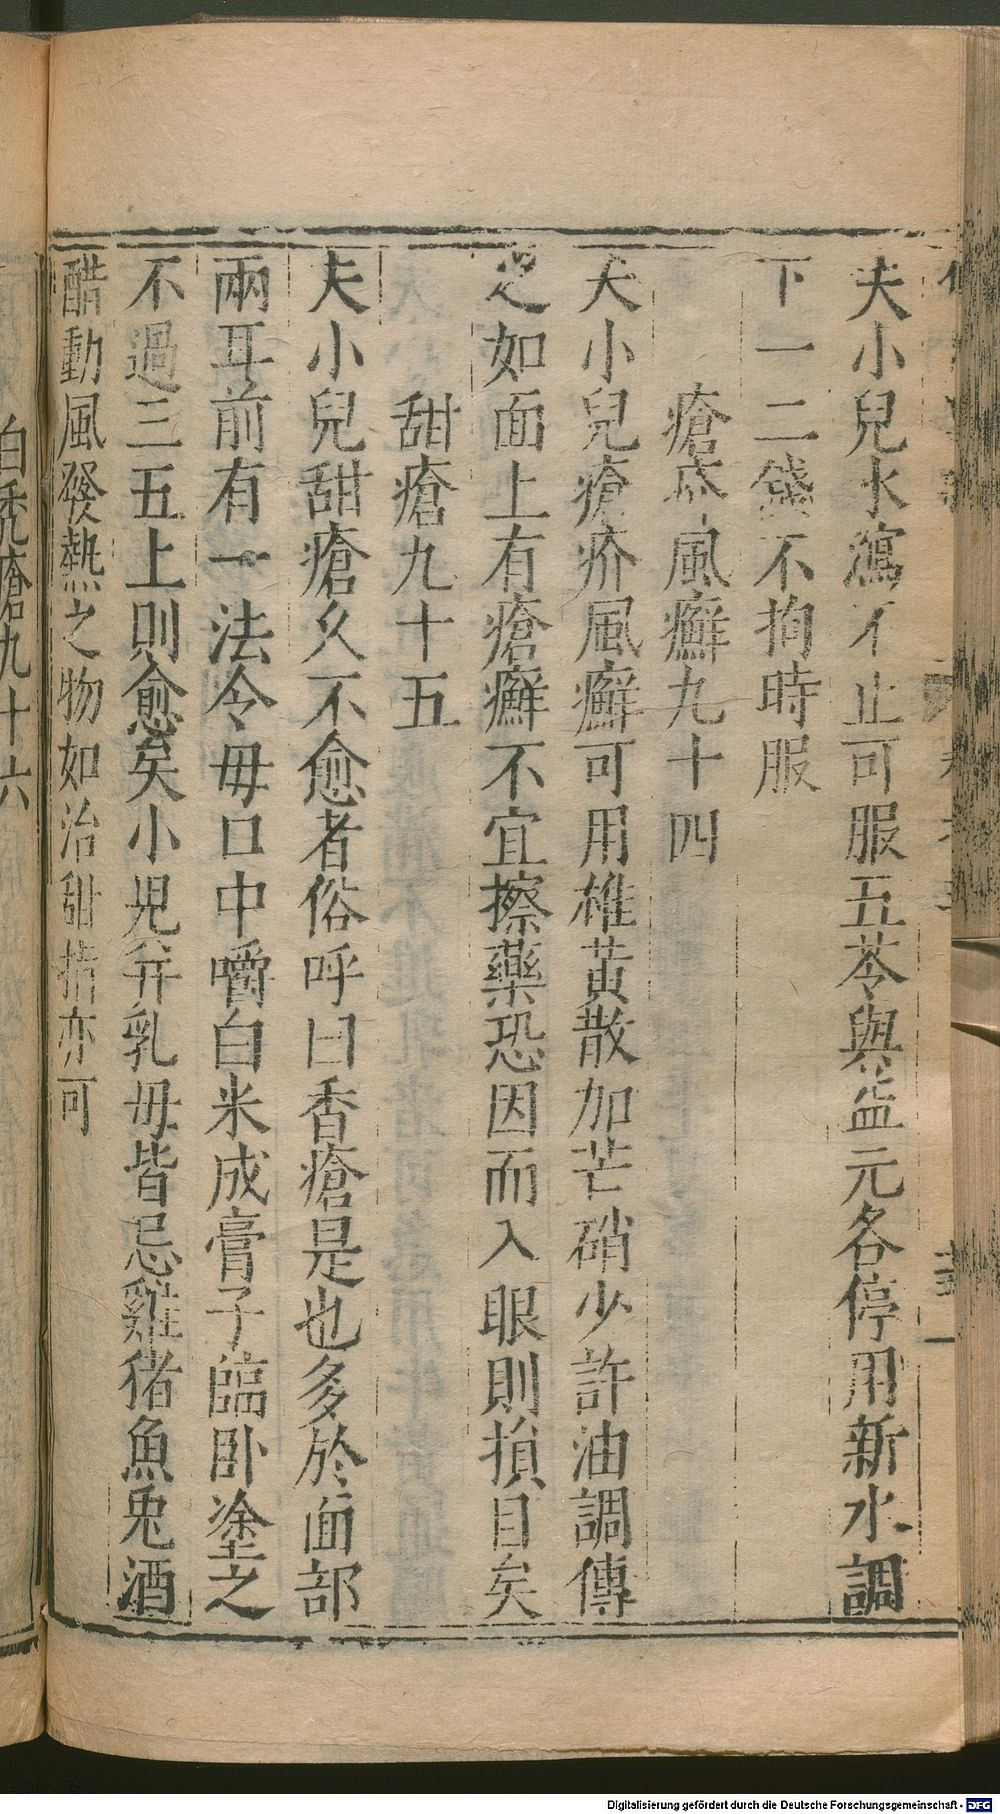 夫小兒水瀉不止可服五苓與益元各停用新水調
下一二錢不拘時服
瘡疥風癬九十四
夫小兒瘡疥風癬可用雄黃散加芒硝少許油調傅
之如面上有瘡癬不宜擦藥恐因而入眼則損目矣
甜瘡九十五
夫小兒甜瘡久不愈者俗呼曰香瘡是也多於面部
兩耳前有一法令母口中嚼白米成膏子臨卧塗之
不過三五上則愈矣小兒并乳母皆忌雞猪魚兎酒
醋動風發熱之物如治甜指亦可
白禿瘡九十六
Digitalisierung gefördert durch die Deutsche Forschungsgemeinschaft - DFG